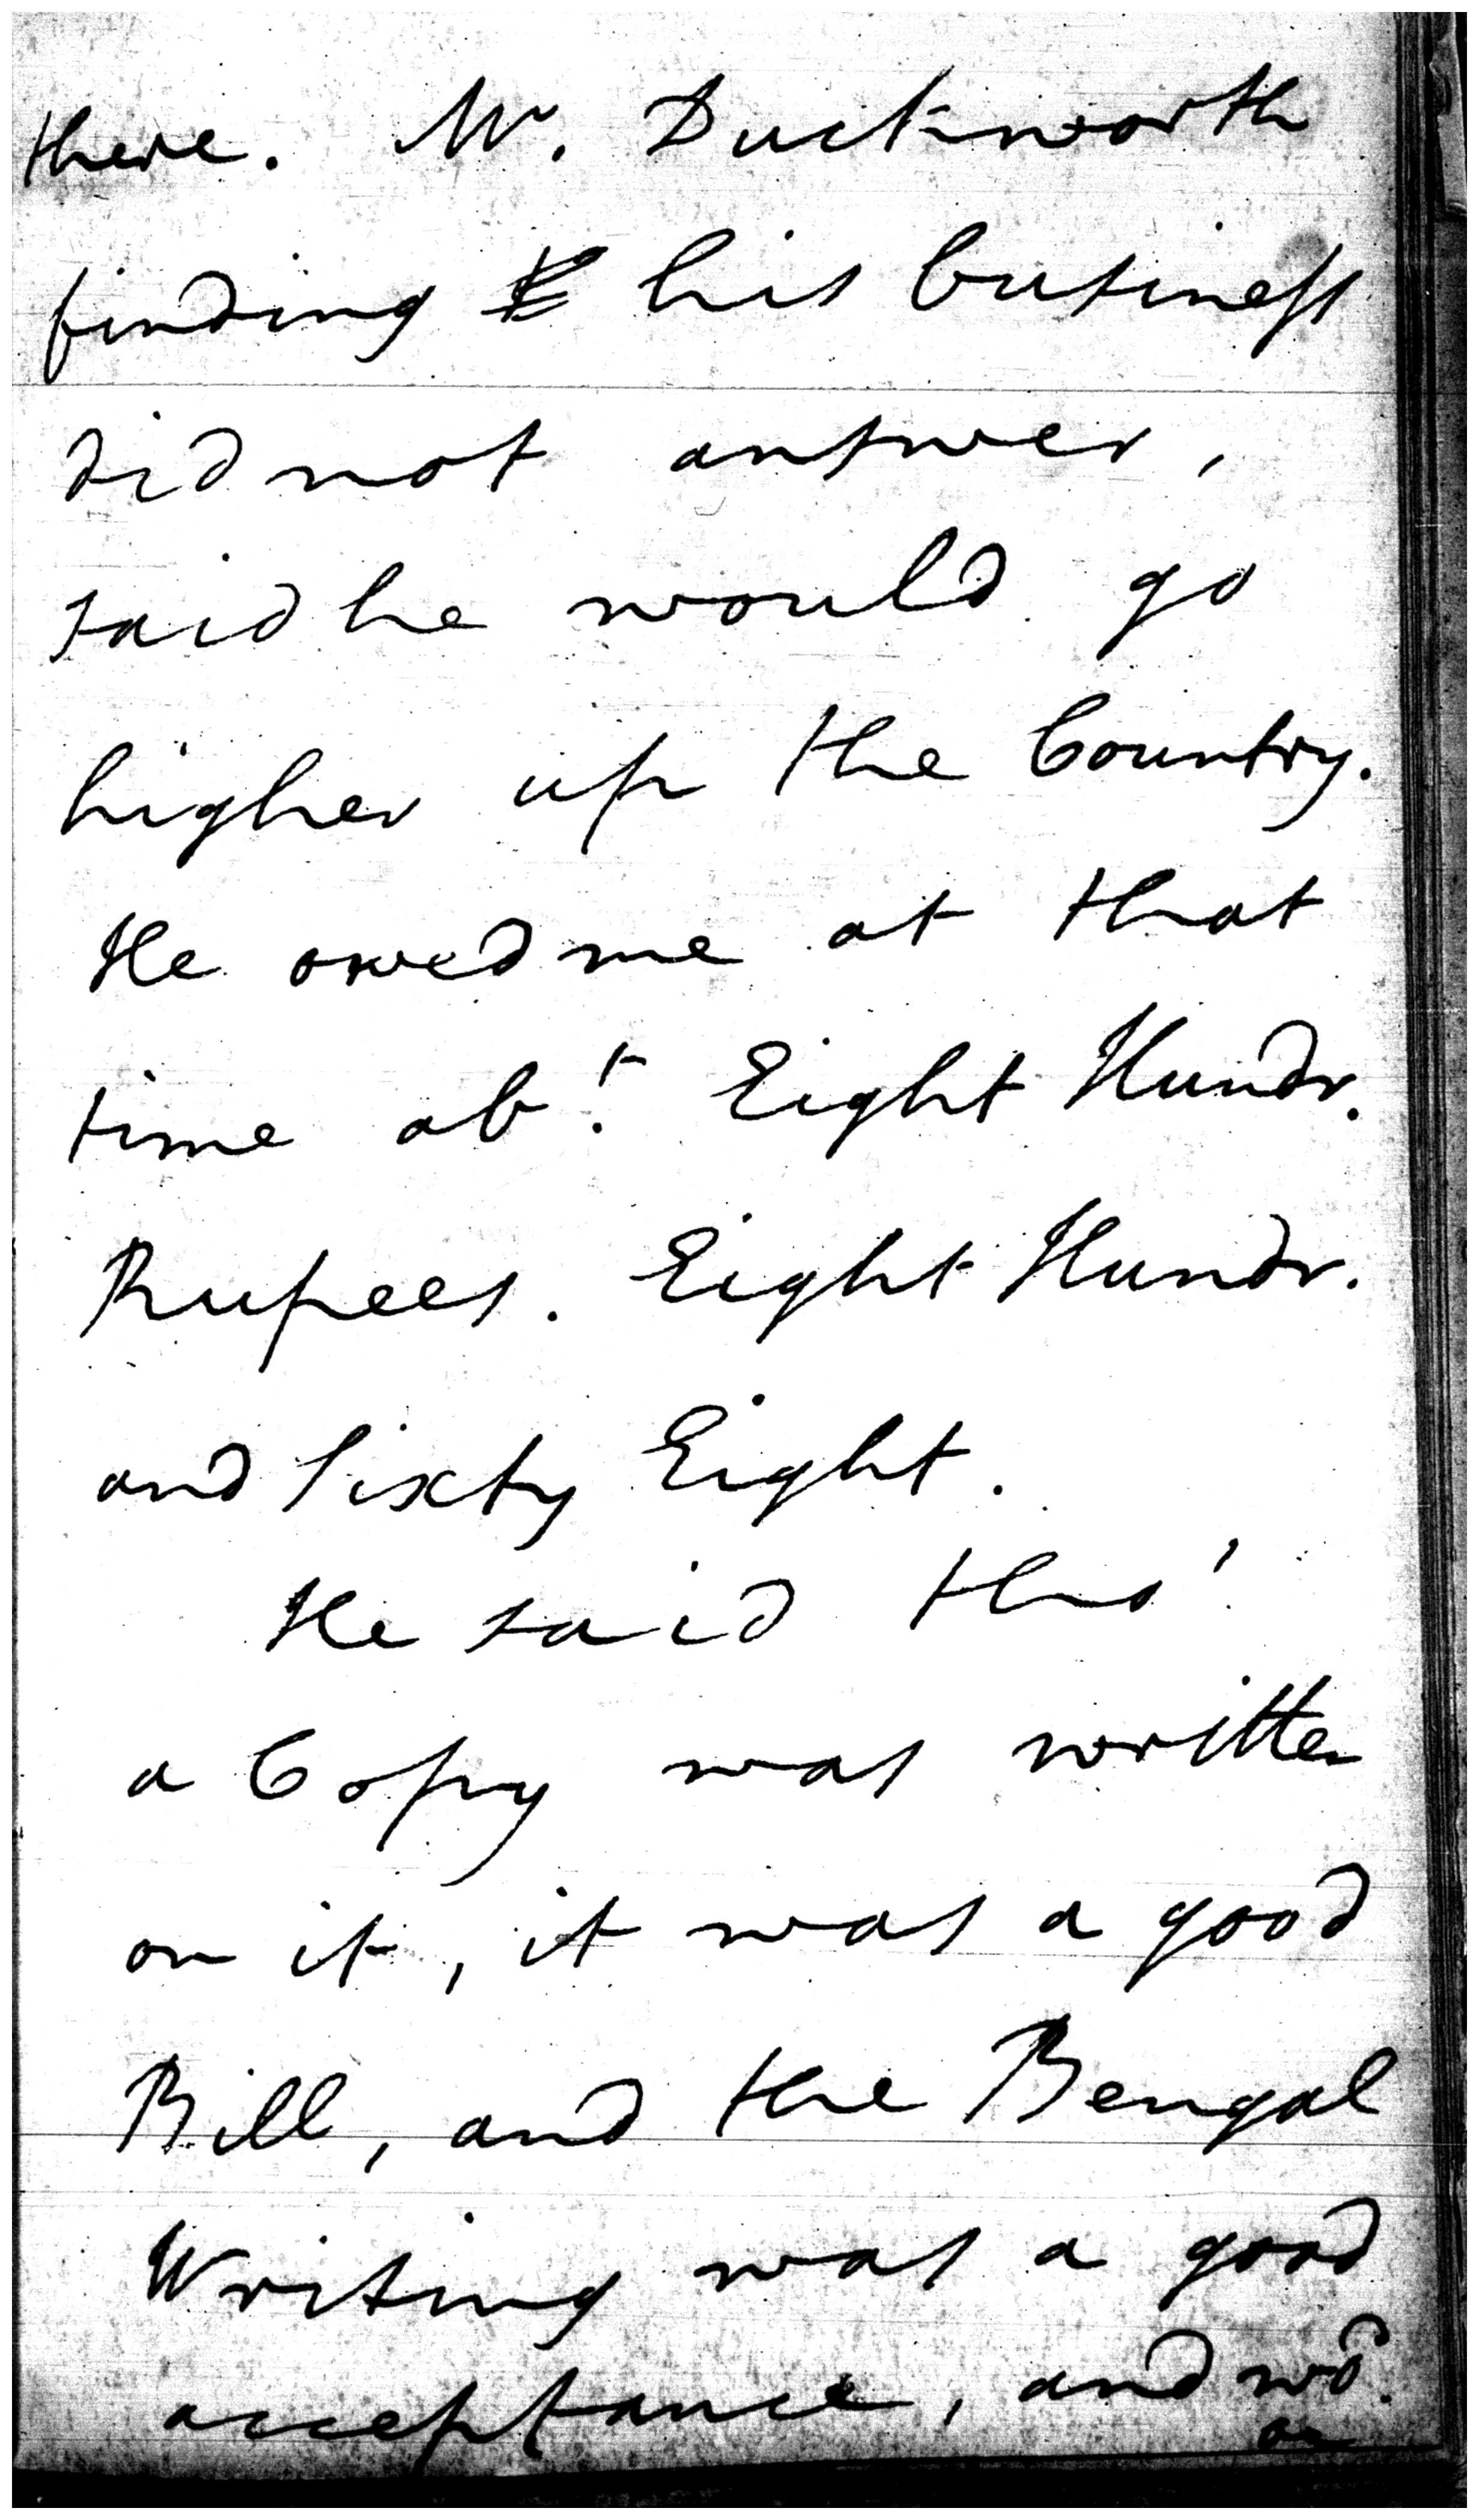 there. Mr. Duckworth
finding his business
did not answer,
said he would go
higher up the Country.
He owed me at that
time abt. Eight Hundr.
Rupees. Eight Hundr.
and Sixty Eight.
He said tho'
a Copy was written
on it, it was a good
Bill, and the Bengal
Writing was a good
acceptance, and wd.